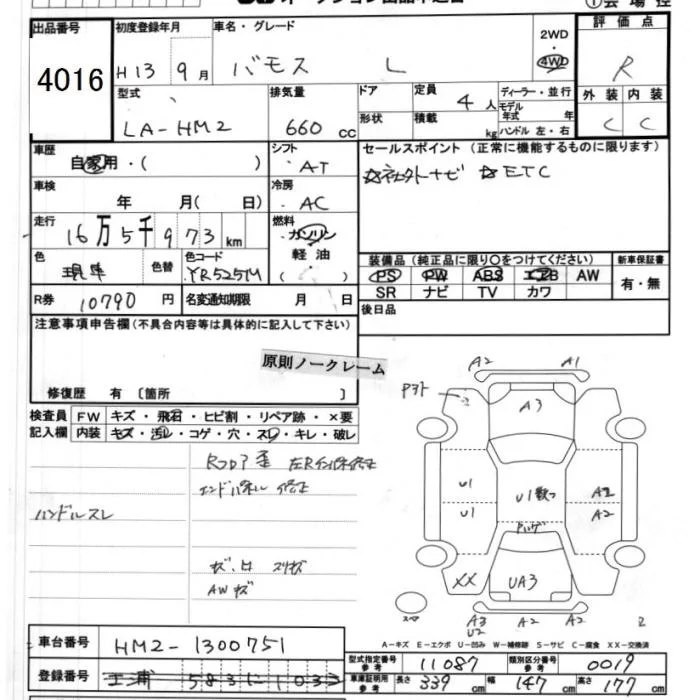 オークション出品申込書
① 会場控
出品番号 4016
初度登録年月 H13 9月
車名・グレード バモス L
2WD・4WD
評価点 R
型式 LA-HM2
排気量 660cc
ドア形状
定員 4人
積載 kg
ディーラー・並行
モデル年式 年
ハンドル 左・右
外装 内装
C C
車歴 自家用・( )
シフト AT
セールスポイント (正常に機能するものに限ります)
☆ETC
車検 年 月( 日)
冷房 AC
走行 16万5千973km
燃料 ガソリン
軽油・( )
装備品 (純正品に限り○をつけてください)
新車保証書
色 色替
色コード YR525M
PS PW ABS エアB AW
有・無
SR ナビ TV カワ
R券 10790円
名変通知期限 月 日
後日品
注意事項申告欄(不具合内容等は具体的に記入して下さい)
原則ノークレーム
修復歴 有〔箇所 〕
検査員記入欄
FW キズ・飛石・ヒビ割・リペア跡・×要
内装 キズ・汚レ・コゲ・穴・スレ・キレ・破レ
ハンドルスレ
エンドパネル 修正
AWキズ
A2 A1
A3
U1
U1
A2
A2
XX
UA3
A3
U2
A2 A2
スペア
A-キズ E-エクボ U-凹み W-補修跡 S-サビ C-腐食 XX-交換済
車台番号 HM2-1300751
型式指定番号 参考 11087
類別区分番号 参考 0019
登録番号 土浦
車庫証明用 参考 長さ 339cm 幅 147cm 高さ 177cm